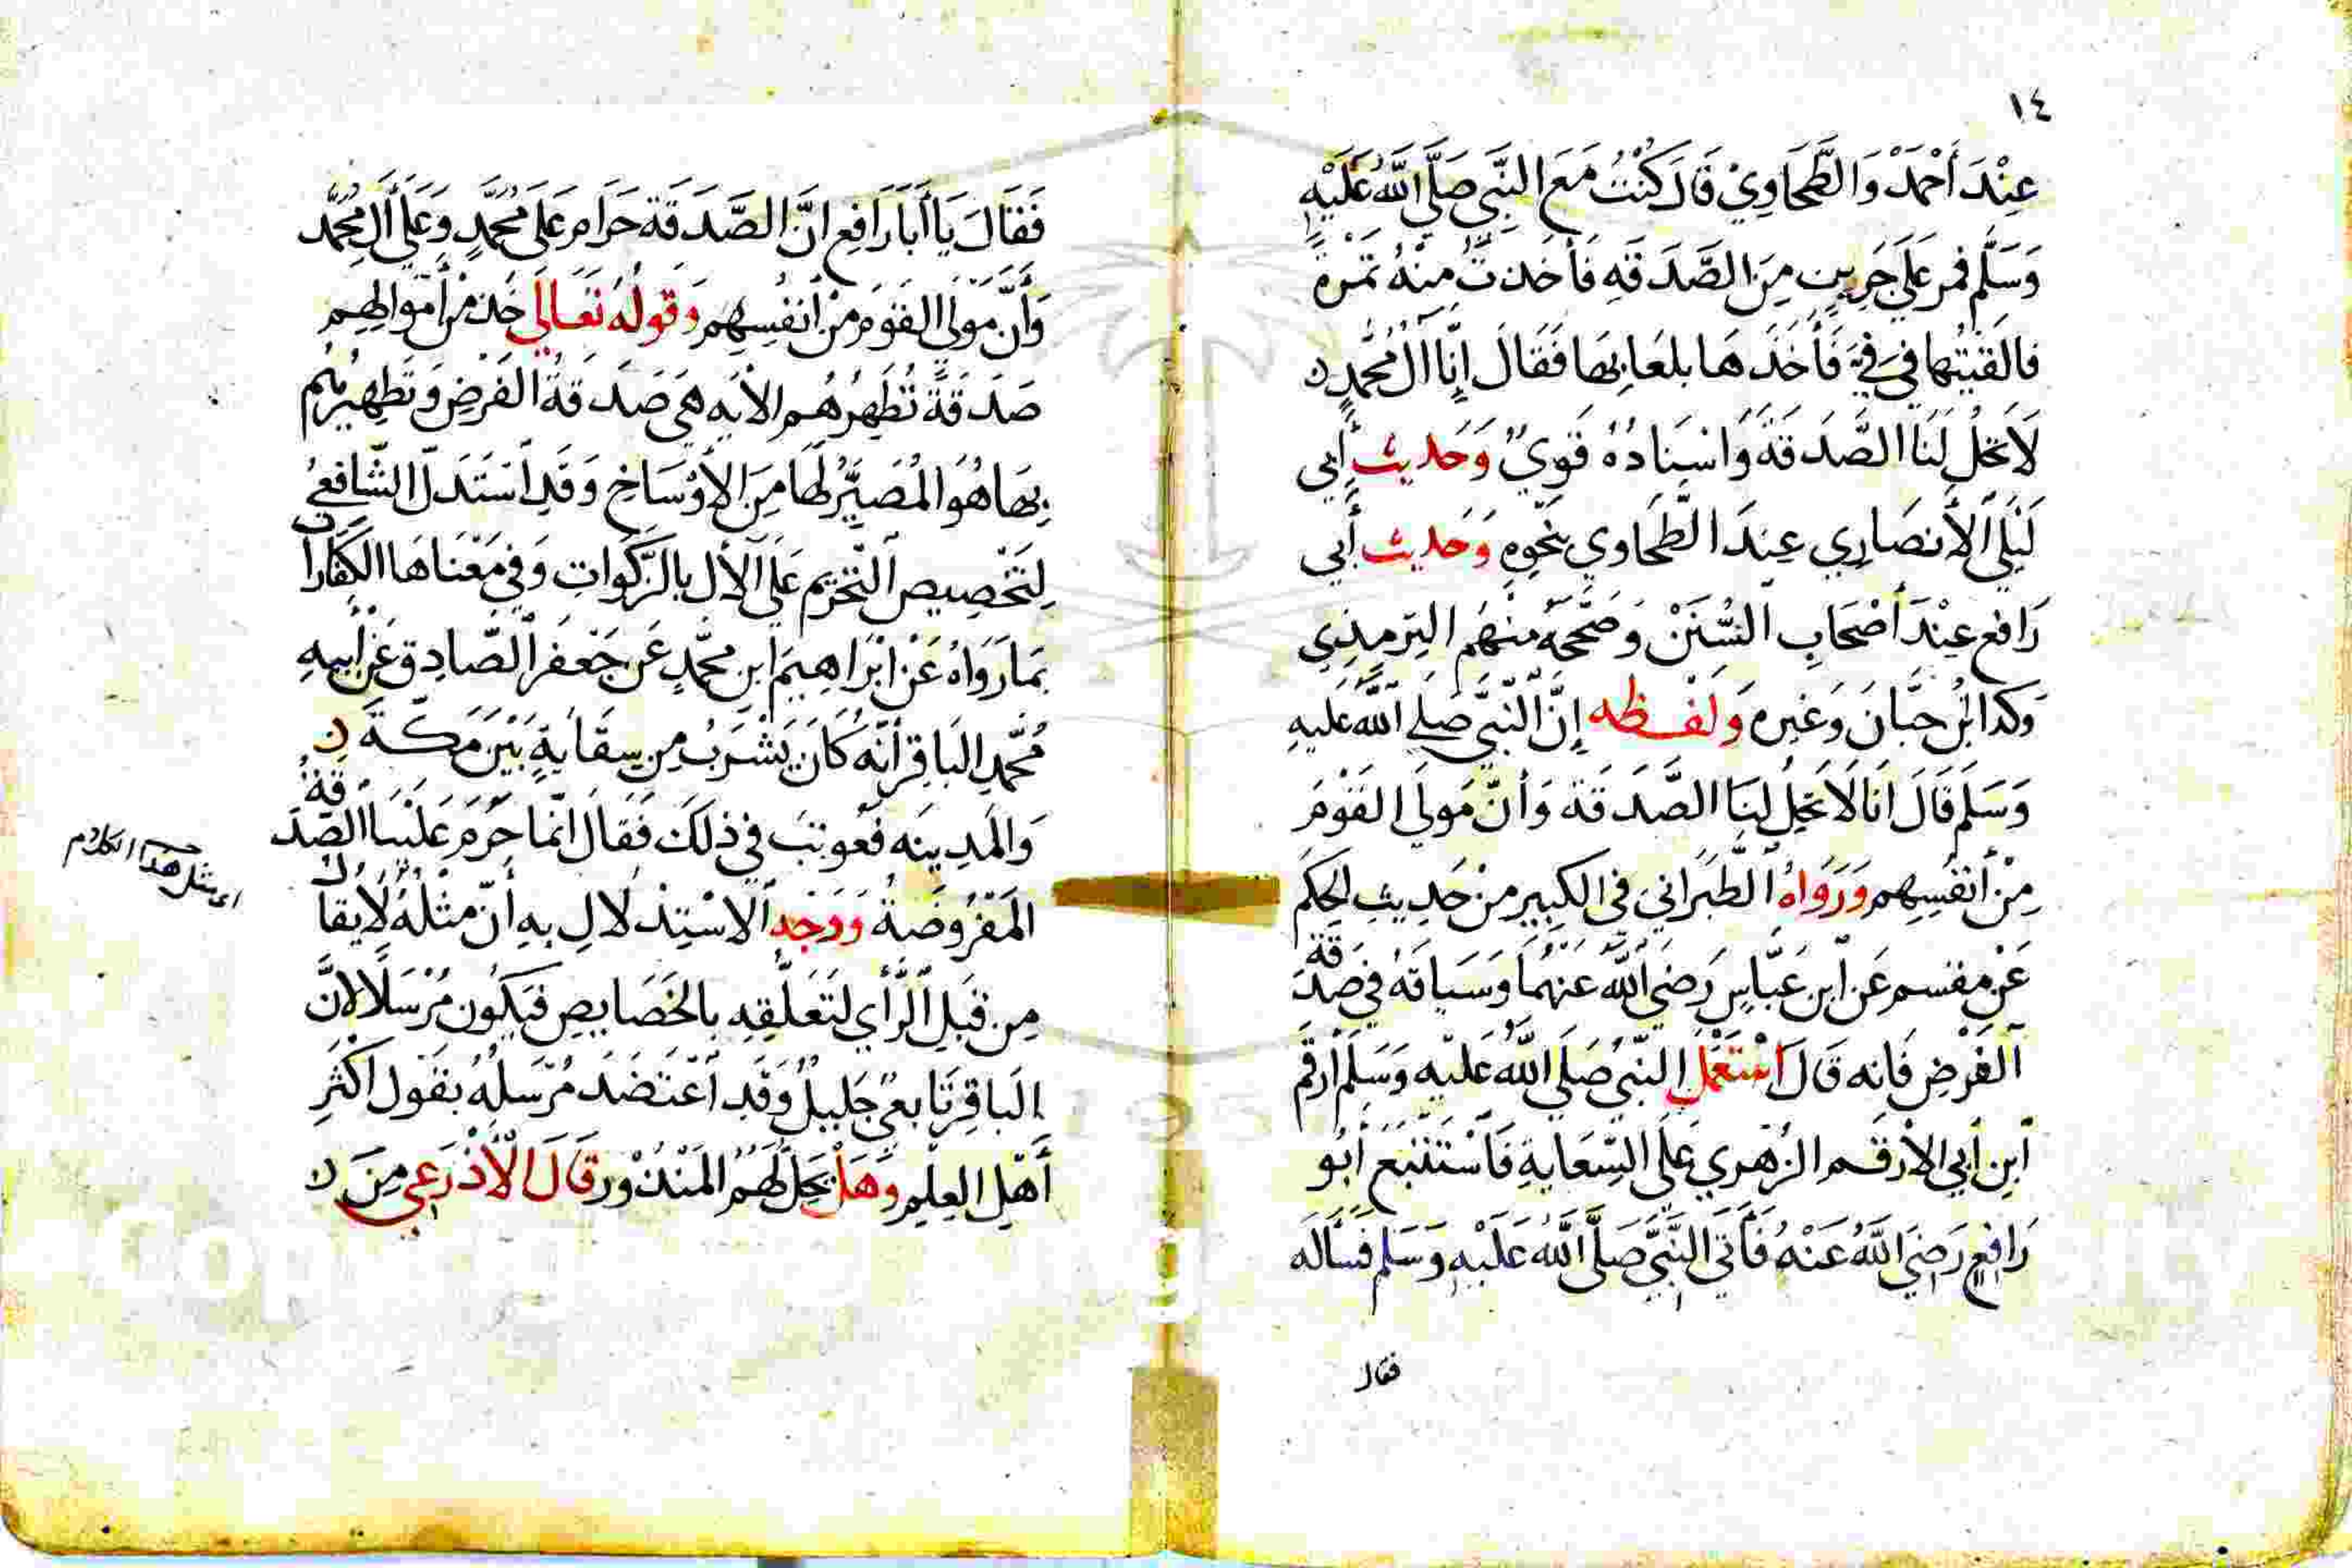 ١٤
عِنْدَ أَحْمَدْ وَالطَّحَاوِيْ قَالَ كُنْتُ مَعَ النَّبِي صَلَّى اللَّهُ عَلَيْهِ
وَسَلَّم فمر عَلَى جَرِينٍ مِنَ الصَّدَقَهِ فَأَخَذتُ مِنْهُ تَمْرةً
فالقَيْتُها فِي فِيَّ فَأَخَذَهَا بلعَابِهَا فَقَالَ إِنَّا آلُ مُحَّمدٍ
لَا تَحِلُ لَنَا الصَّدَقَةَ وَاسنَادُهُ قَوِيٌ وَحَديث أَبِي
لَيْلَي الأَنصَارِي عِندَ الطَّحَاوي بنَحْوِهِ وَحَديث أَبي
رَافع عِنْدَ أَصْحَابِ السُّنَنْ وَصَحَّحَهُ مِنهُم التِرمِذِي
وَكَذا ابْنُ حبَّانَ وَغَيرِه وَلفظه إِنَّ النَّبِيَّ صَلي اللَّهُ عَليهِ
وَسَلَم قَالَ انَا لَا تَحِلُ لنَا الصَّدَقَة وَأنَّ مَولَى القَوْمَ
مِنْ أَنفُسِهِم وَرَوَاهُ الطَّبَرَانيَ في الكِبِير مِنْ حَدِيثِ الحَكَم
عَنْ مِقسم عَن ابن عَبَّاسٍ رَضيَ اللَّهُ عَنْهمَا وَسَياقَهُ فِي صَدَقَة
الفَرْضِ فَانه قَالَ اسْتَعْمَل النَّبيُ صَلَي اللَّهُ عَلَيْهِ وَسَلَم ارقَم
ابنِ أَبِي الأَرقَم الزُهرِي عَلَى السِّعَايةِ فَاسْتَتْبَعَ أَبُو
رَافِعٍ رَضِيَ اللَّهُ عَنْهُ فَأَتَي النَّبيَّ صَلَّي اللَّهُ عَلَيْهِ وَسَلم فَسَأَلَه
فقال
فَقَالَ يَا أَبَا رَافع انَّ الصَّدَقَة حَرَام عَلَى مُحَمَّدٍ وَعَلَي أَلِ مُحَمَّد
وَأَنَّ مَوْلَي القَوَم مِنْ أَنفُسِهِم وَقولُهُ تعَالَي خُذ مْن أَمْوَالِهِم
صَدَقَةً تُطَهِرُهُم الأَيه هِيَ صَدَقةُ الفَرْضِ وَتَطهِيرُهُم
بِهَا هُوَ المُصَيِّرُ لهَا مِنَ الأَوْسَاخِ وَقَدِ اسْتَدَلَّ الشَّافعيُ
لِتَخْصِيص التَحْرِيم عَلَي الأَلِ بِالزَكَوَاتِ وَفِي مَعْنَاهَا الكَفَّارات
بَمَا رَوَاهُ عَنْ ابْرَاهِيمَ ابن محمَّدٍ عَن جَعفَر الصَّادِق عَنْ أَبِيهِ
مُحَّمدِ البَاقِر أَنَّهُ كَانَ يَشْرَبُ مِن سِقَايَةٍ بَيْنَ مَكَّةَ
وَالمَدِينَه فَعُوتِبَ فِي ذلكَ فَقَالَ انَّما حُرّمَ عَلَيْنَا الصَّدَقةُ
المَفْرُوضَةُ وَوَجْه الاسْتِذْلَالِ بِهِ أَنَّ مثْلَهُ لَا يقَالُ
مِن قبَلِ الرَّأي لتَعَلُّقِهِ بالخَصَايصِ فيَكُون مُرْسَلًا لأنَّ
البَاقِرَ تَابعيٌ جَليلٌ وَقَد اعْتَضَدَ مُرْسَلُهُ بقَول أَكثَرِ
أَهْلِ العِلِم وَهَلْ يَحِلُ لَهُمُ المَنْذُوْر قَالَ الْأَذْرَعِي مِنَ
اي مثل هذا الكلام